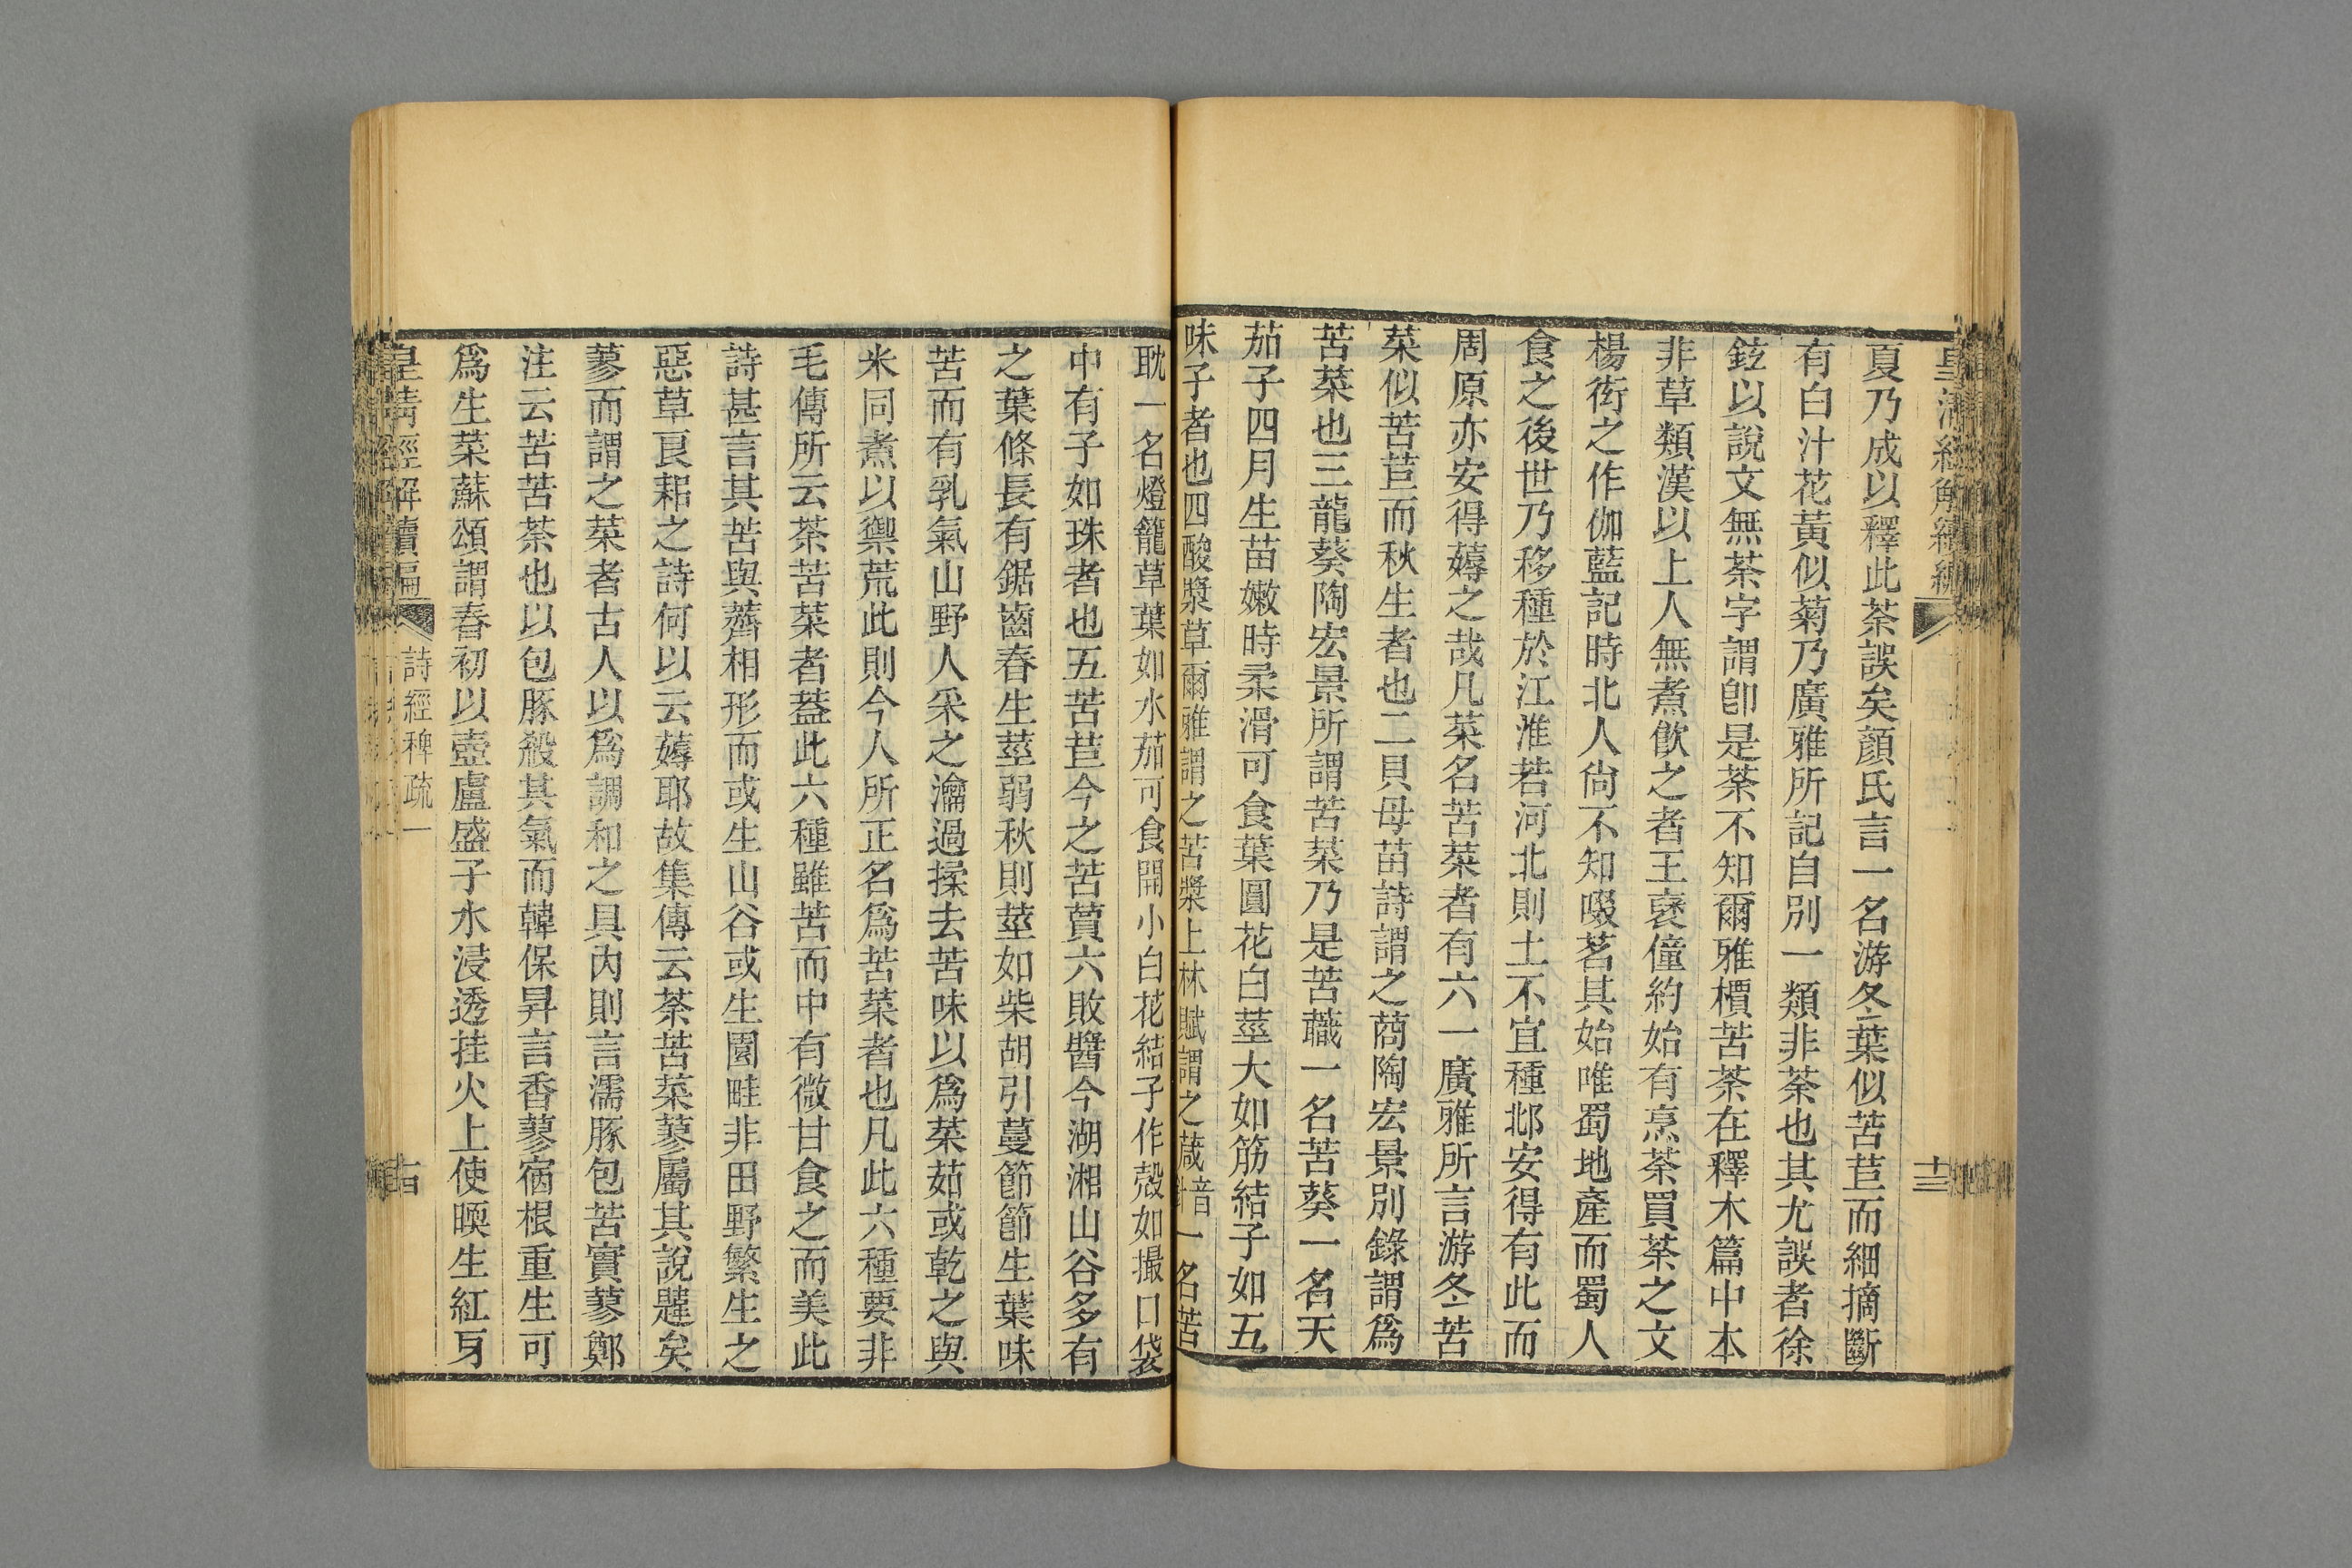 夏乃成以釋此荼誤矣顏氏言一名游冬葉似苦苣而細摘斷
有白汁花黃似菊乃廣雅所記自別一類非荼也其尤誤者徐
鉉以說文無茶字謂卽是荼不知爾雅檟苦荼在釋木篇中本
非草類漢以上人無煮飲之者王襃僮約始有烹荼買荼之文
楊衒之作伽藍記時北人尙不知啜茗其始唯蜀地產而蜀人
食之後世乃移種於江淮若河北則土不宜種邶安得有此而
周原亦安得薅之哉凡菜名苦菜者有六一廣雅所言游冬苦
菜似苦苣而秋生者也二貝母苗詩謂之莔陶宏景別錄謂爲
苦菜也三龍葵陶宏景所謂苦菜乃是苦蘵一名苦葵一名天
茄子四月生苗嫩時柔滑可食葉圓花白莖大如筋結子如五
味子者也四酸漿草爾雅謂之苦漿上林賦謂之葴音針一名苦
耽一名燈籠草葉如水茄可食開小白花結子作殼如撮口袋
中有子如珠者也五苦苣今之苦蕒六敗醬今湖湘山谷多有
之葉條長有鋸齒春生莖弱秋則莖如柴胡引蔓節節生葉味
苦而有乳氣山野人采之瀹過揉去苦味以爲菜茹或乾之與
米同煮以禦荒此則今人所正名爲苦菜者也凡此六種要非
毛傳所云荼苦菜者蓋此六種雖苦而中有微甘食之而美此
詩甚言其苦與薺相形而或生山谷或生園畦非田野繁生之
惡草良耜之詩何以云薅耶故集傳云荼苦菜蓼屬其說韙矣
蓼而謂之菜者古人以爲調和之具內則言濡豚包苦實蓼鄭
注云苦苦荼也以包豚殺其氣而韓保昇言香蓼宿根重生可
爲生菜蘇頌謂春初以壺盧盛子水浸透挂火上使暎生紅牙
皇淸經解續編 詩經稗疏一 十四